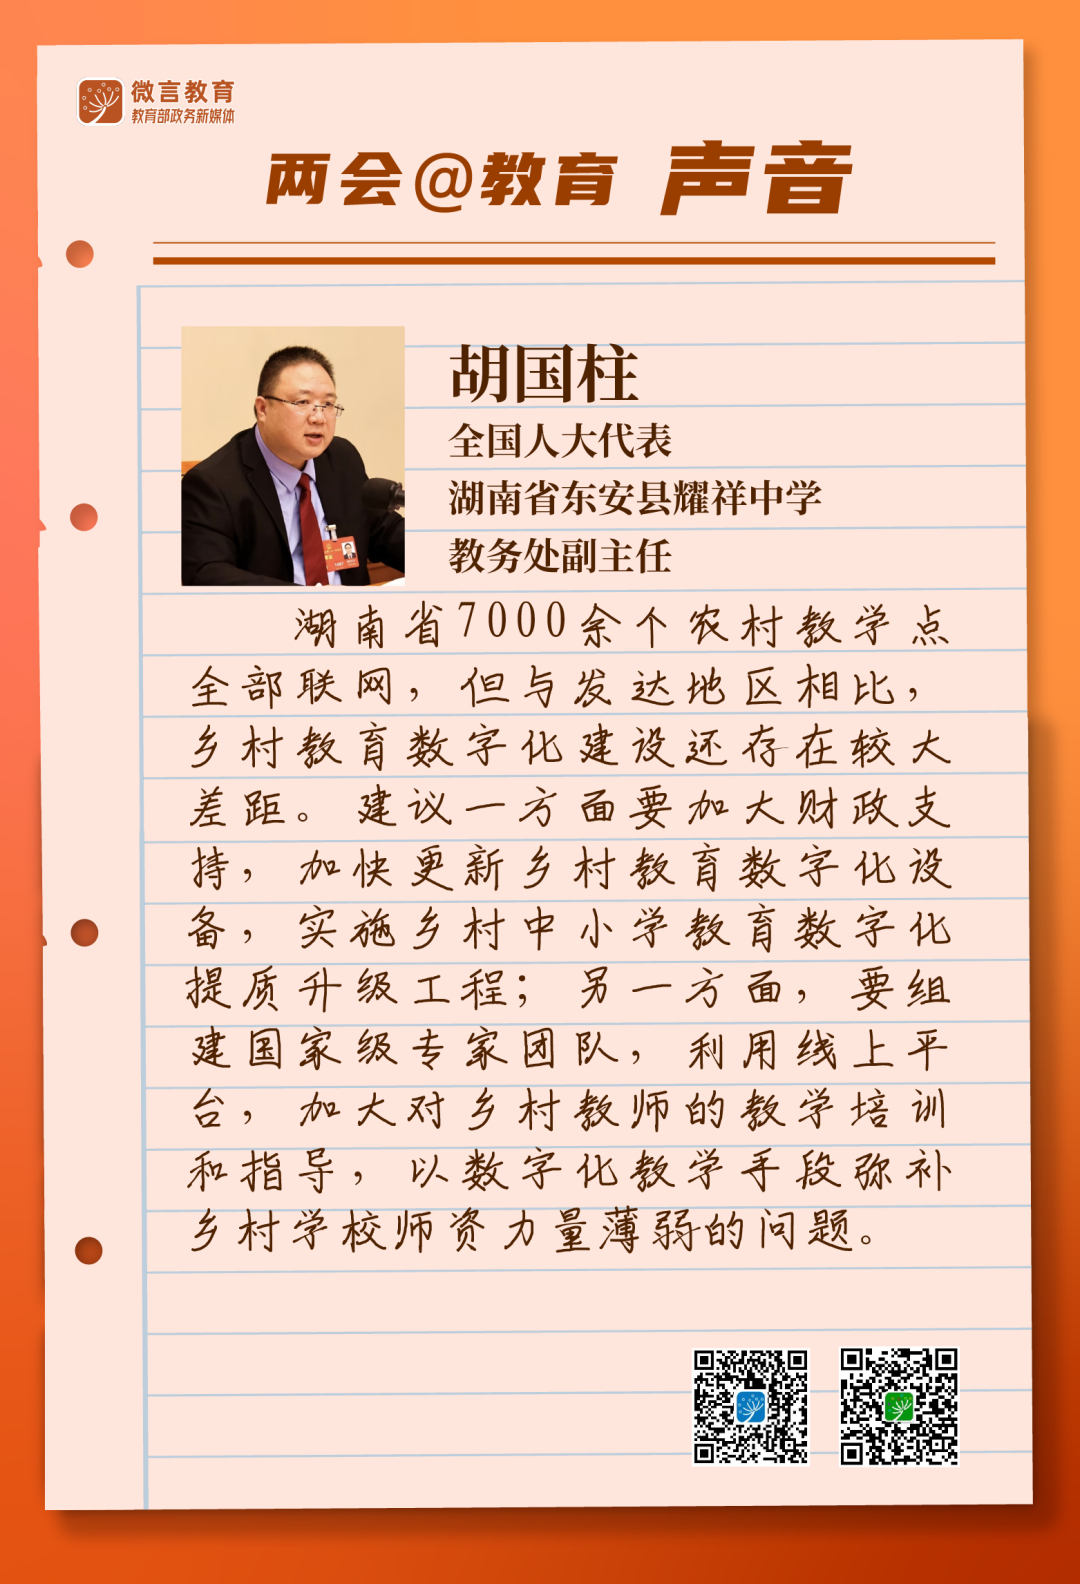 微言教育
教育部政务新媒体
两会@教育 声音
胡国柱
全国人大代表
湖南省东安县耀祥中学
教务处副主任
湖南省7000余个农村教学点
全部联网，但与发达地区相比，
乡村教育数字化建设还存在较大
差距。建议一方面要加大财政支
持，加快更新乡村教育数字化设
备，实施乡村中小学教育数字化
提质升级工程；另一方面，要组
建国家级专家团队，利用线上平
台，加大对乡村教师的教学培训
和指导，以数字化教学手段弥补
乡村学校师资力量薄弱的问题。